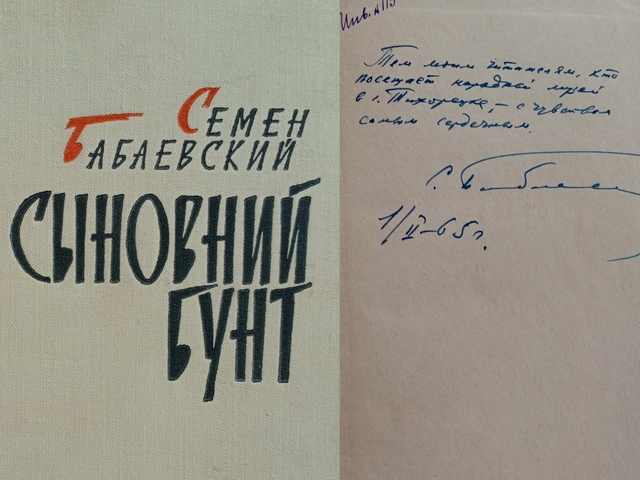 Семен
Бабаевский
Сыновний
бунт
Инв. №113
Тем моим читателям, кто
посещает народный музей
в г. Тихорецке, – с чувством
самым сердечным.
С. Бабаевский
1/II–65 г.